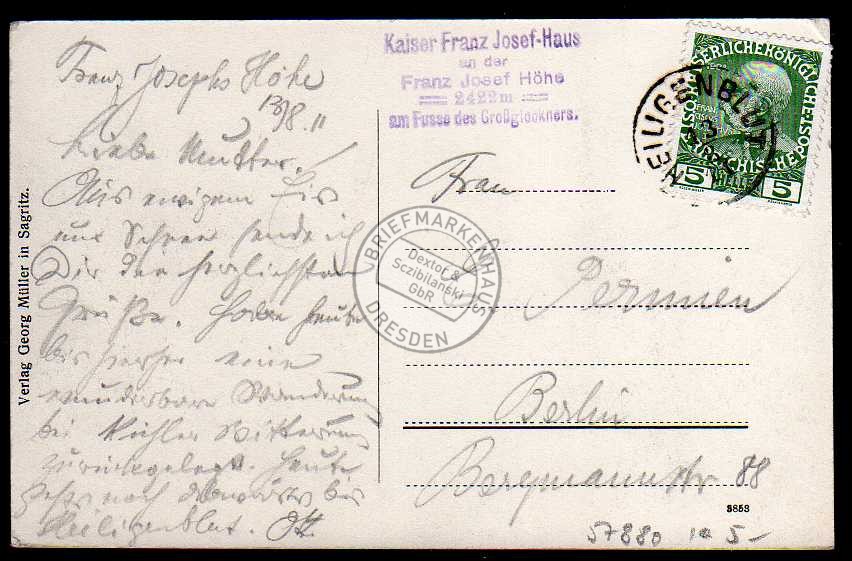 Franz Josephs Höhe
13/8.11
Liebe Mutter!
Aus ewigem Eis
und Schnee sende ich
Dir die herzlichsten
Grüße. Habe heute
bis hierher eine
wunderbare Wanderung
bei kühler Witterung
zurückgelegt. Heute
geht's noch abwärts bis
Heiligenblut. Ott.
Verlag Georg Müller in Sagritz.
Kaiser Franz Josef-Haus
an der
Franz Josef Höhe
2422m
am Fusse des Großglockners.
KAISERLICHEKÖNIGLICHE
ÖSTERREICHISCHE POST
5 5
HEILIGENBLUT
BRIEFMARKENHAUS
Dextor &
Sczibilanski
GbR
DRESDEN
Frau
Permien
Berlin
Bergmannstr 88
3853
57880 10 5-